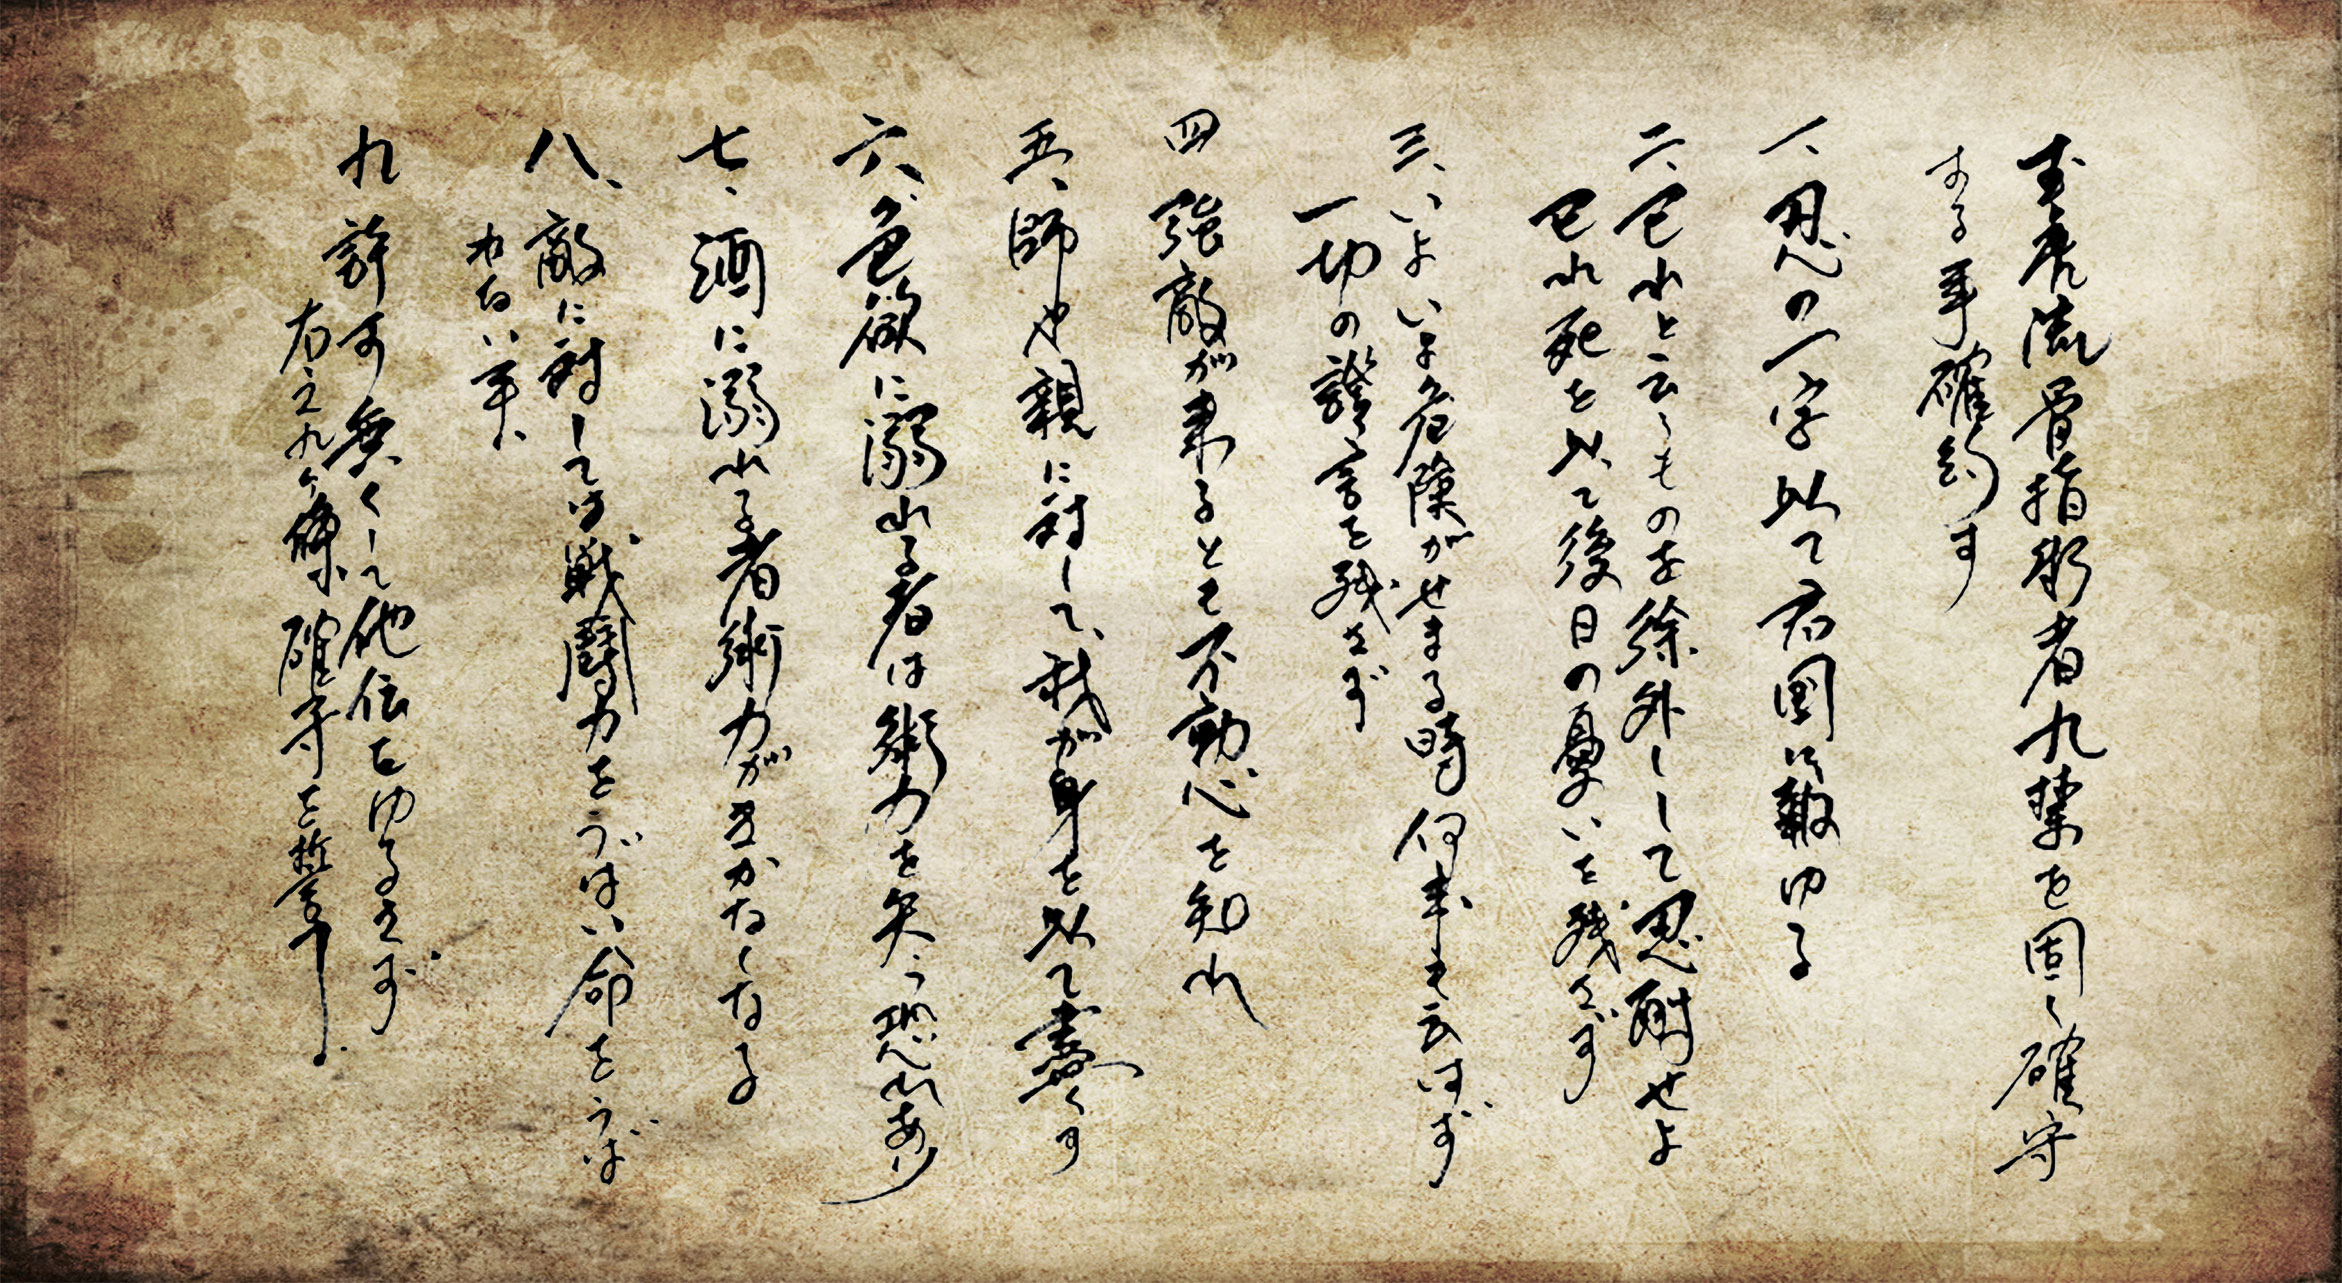 玉虎流骨指術者九禁を固く確守
する事確約す
一、忍の一字以て君国に報ゆる
二、己れと云うものを徐外して忍耐せよ
己れ死を以て後日の憂いを残さず
三、いよいよ危険がせまる時何事も云はず
一切の言を残さず
四 強敵が来るとも不動心を知れ
五、師や親に対して、我が身を以て盡くす
六、色欲に溺れる者は術力を失う恐れあり
七、酒に溺れる者術力がきかなくなる
八、敵に対しては戦闘力をうばい命をうば
わない事、
九 許可無くして他伝をゆるさず
右之九ヶ條確守を誓う